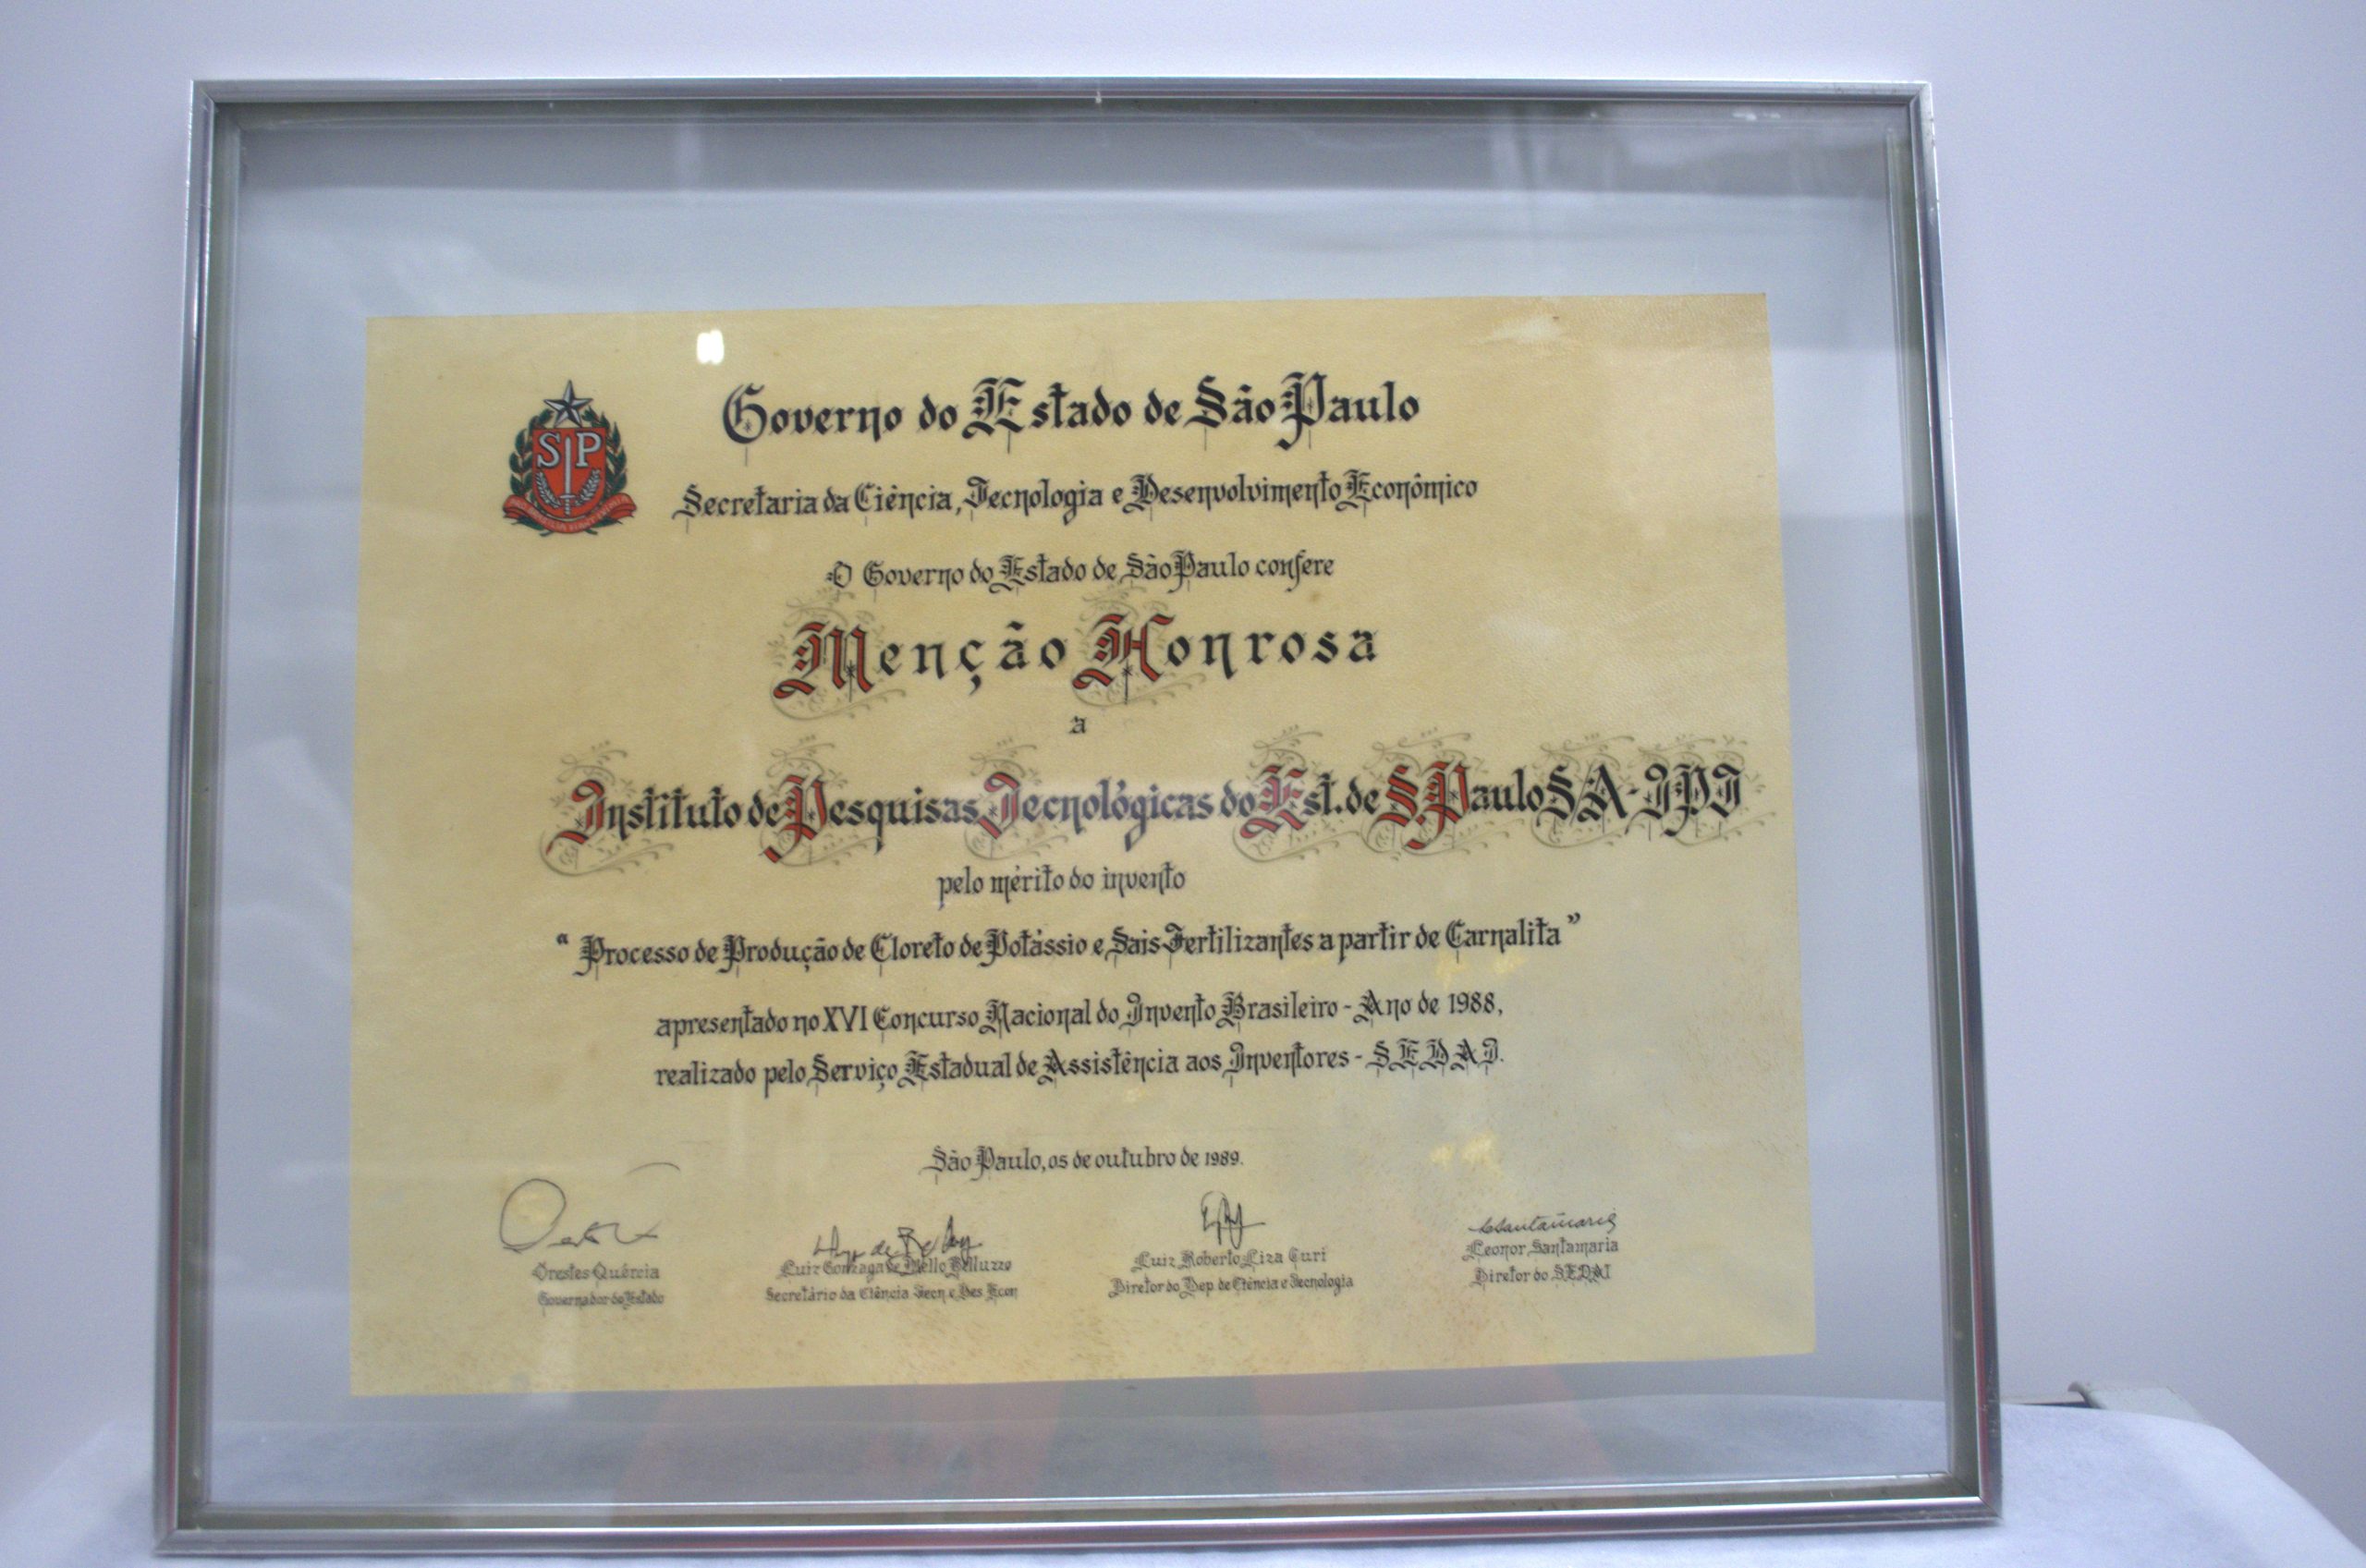 SP
Governo do Estado de São Paulo
Secretaria da Ciência, Tecnologia e Desenvolvimento Econômico
O Governo do Estado de São Paulo confere
Menção Honrosa
a
Instituto de Pesquisas Tecnológicas do Est. de S. Paulo SA - IPT
pelo mérito do invento
" Processo de Produção de Cloreto de Potássio e Sais Fertilizantes a partir de Carnalita "
apresentado no XVI Concurso Nacional do Invento Brasileiro - Ano de 1988,
realizado pelo Serviço Estadual de Assistência aos Inventores - SEDAI.
São Paulo, 05 de outubro de 1989.
Orestes Quércia
Governador do Estado
Luiz Gonzaga de Mello Belluzzo
Secretário da Ciência Tecn. e Des Econ
Luiz Roberto Liza Curi
Diretor do Dep de Ciência e Tecnologia
Leonor Santamaria
Diretor do SEDAI